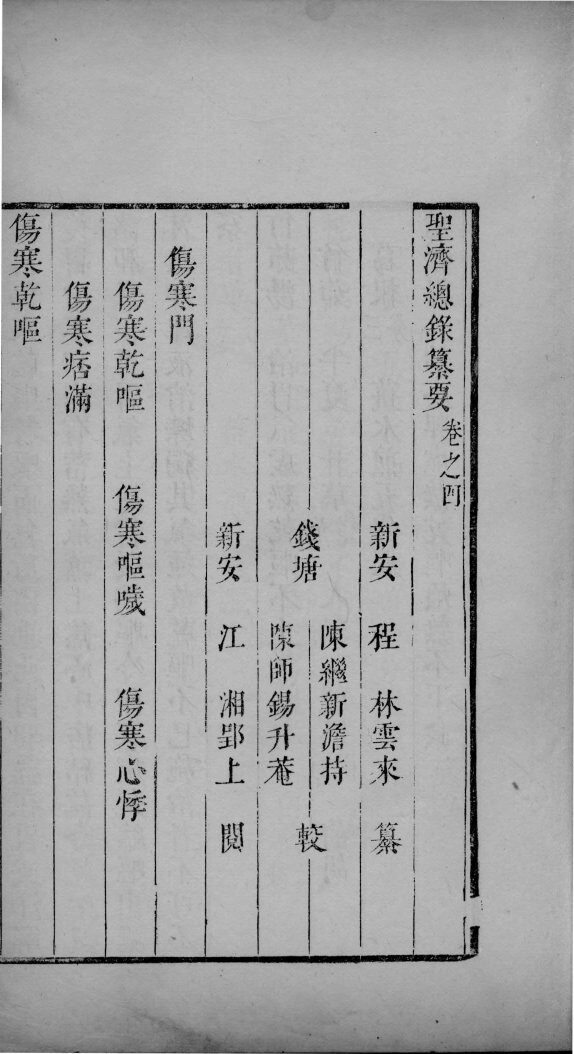 聖濟總錄纂要 卷之四
新安 程 林雲來 纂
錢塘 陳繼新澹持 較
陳師錫升菴
新安 江 湘郢上 閱
傷寒門
傷寒乾嘔 傷寒嘔噦 傷寒心悸
傷寒痞滿
傷寒乾嘔